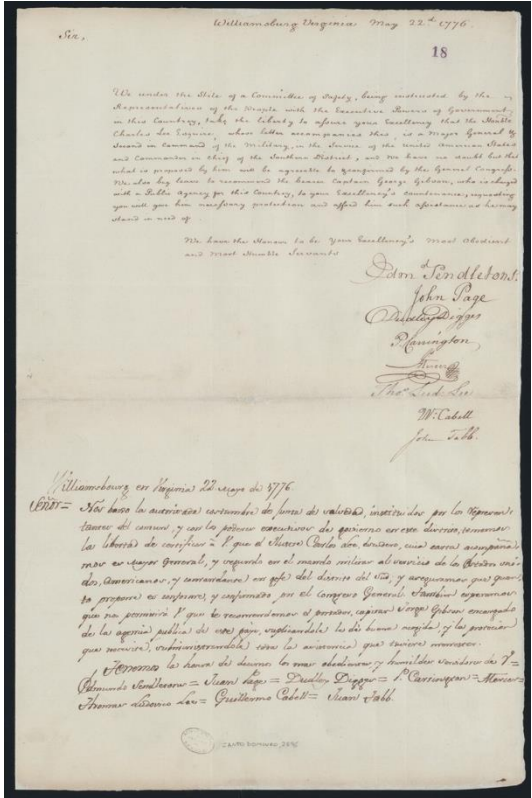 Williamsburg Virginia May 22.d 1776.
18
Sir,
We under the Stile of a Committee of Safety, being instituted by the
Representatives of the People with the Executive Powers of Government
in this Country, take the liberty to assure your Excellency that the Honble
Charles Lee Esquire, whose letter accompanies this, is a Major General &
Second in Command of the Military, in the Service of the United American States
and Commander in Chief of the Southern District, and We have no doubt but that
what is proposed by him will be agreeable to & confirmed by the General Congress.
We also beg leave to recommend the bearer Captain George Gibson, who is charged
with a Public Agency for this Country, to your Excellency's countenance, requesting
you will give him necessary protection and afford him such assistance as he may
stand in need of.
We have the Honour to be Your Excellency's Most Obedient
and Most Humble Servants
Edm.d Pendleton
John Page
Dudley Digges
P. Carrington
Thos. Lud. Lee
Wm. Cabell
John Tabb.
Williamsbourg en Virginia 22 Mayo de 1776
Señor =
Nos baxo la autorizada costumbre de Junta de salvedad, instituidos por los Represen-
tantes del comun, y con los poderes executivos de govierno en este distrito, tomamos
la libertad de certificar á V que el Ilustre Carlos Lee, escudero, cuia carta acompaña-
mos es Mayor General, y segundo en el mando militar al servicio de los Estados uni-
dos, americanos, y comandante en gefe del distrito del Sud, y aseguramos que quan-
to propone es conforme, y confirmado por el Congreso General. Tambien esperamos
que nos permitirá V que le recomendemos el portador, capitan Jorge Gibson encargado
de la agencia publica de este pays, suplicandole le dé buena acogida, y la proteccion
que necesite, subministrandole toda la asistencia que tuviere menester.
Tenemos la honra de decirnos los mas obedientes y humildes servidores de V =
Edmundo Pendleton = Juan Page = Dudley Digges = P. Carrington = Mercer =
Thomas Ludovico Lee = Guillermo Cabell = Juan Tabb.
SANTO DOMINGO, 2596